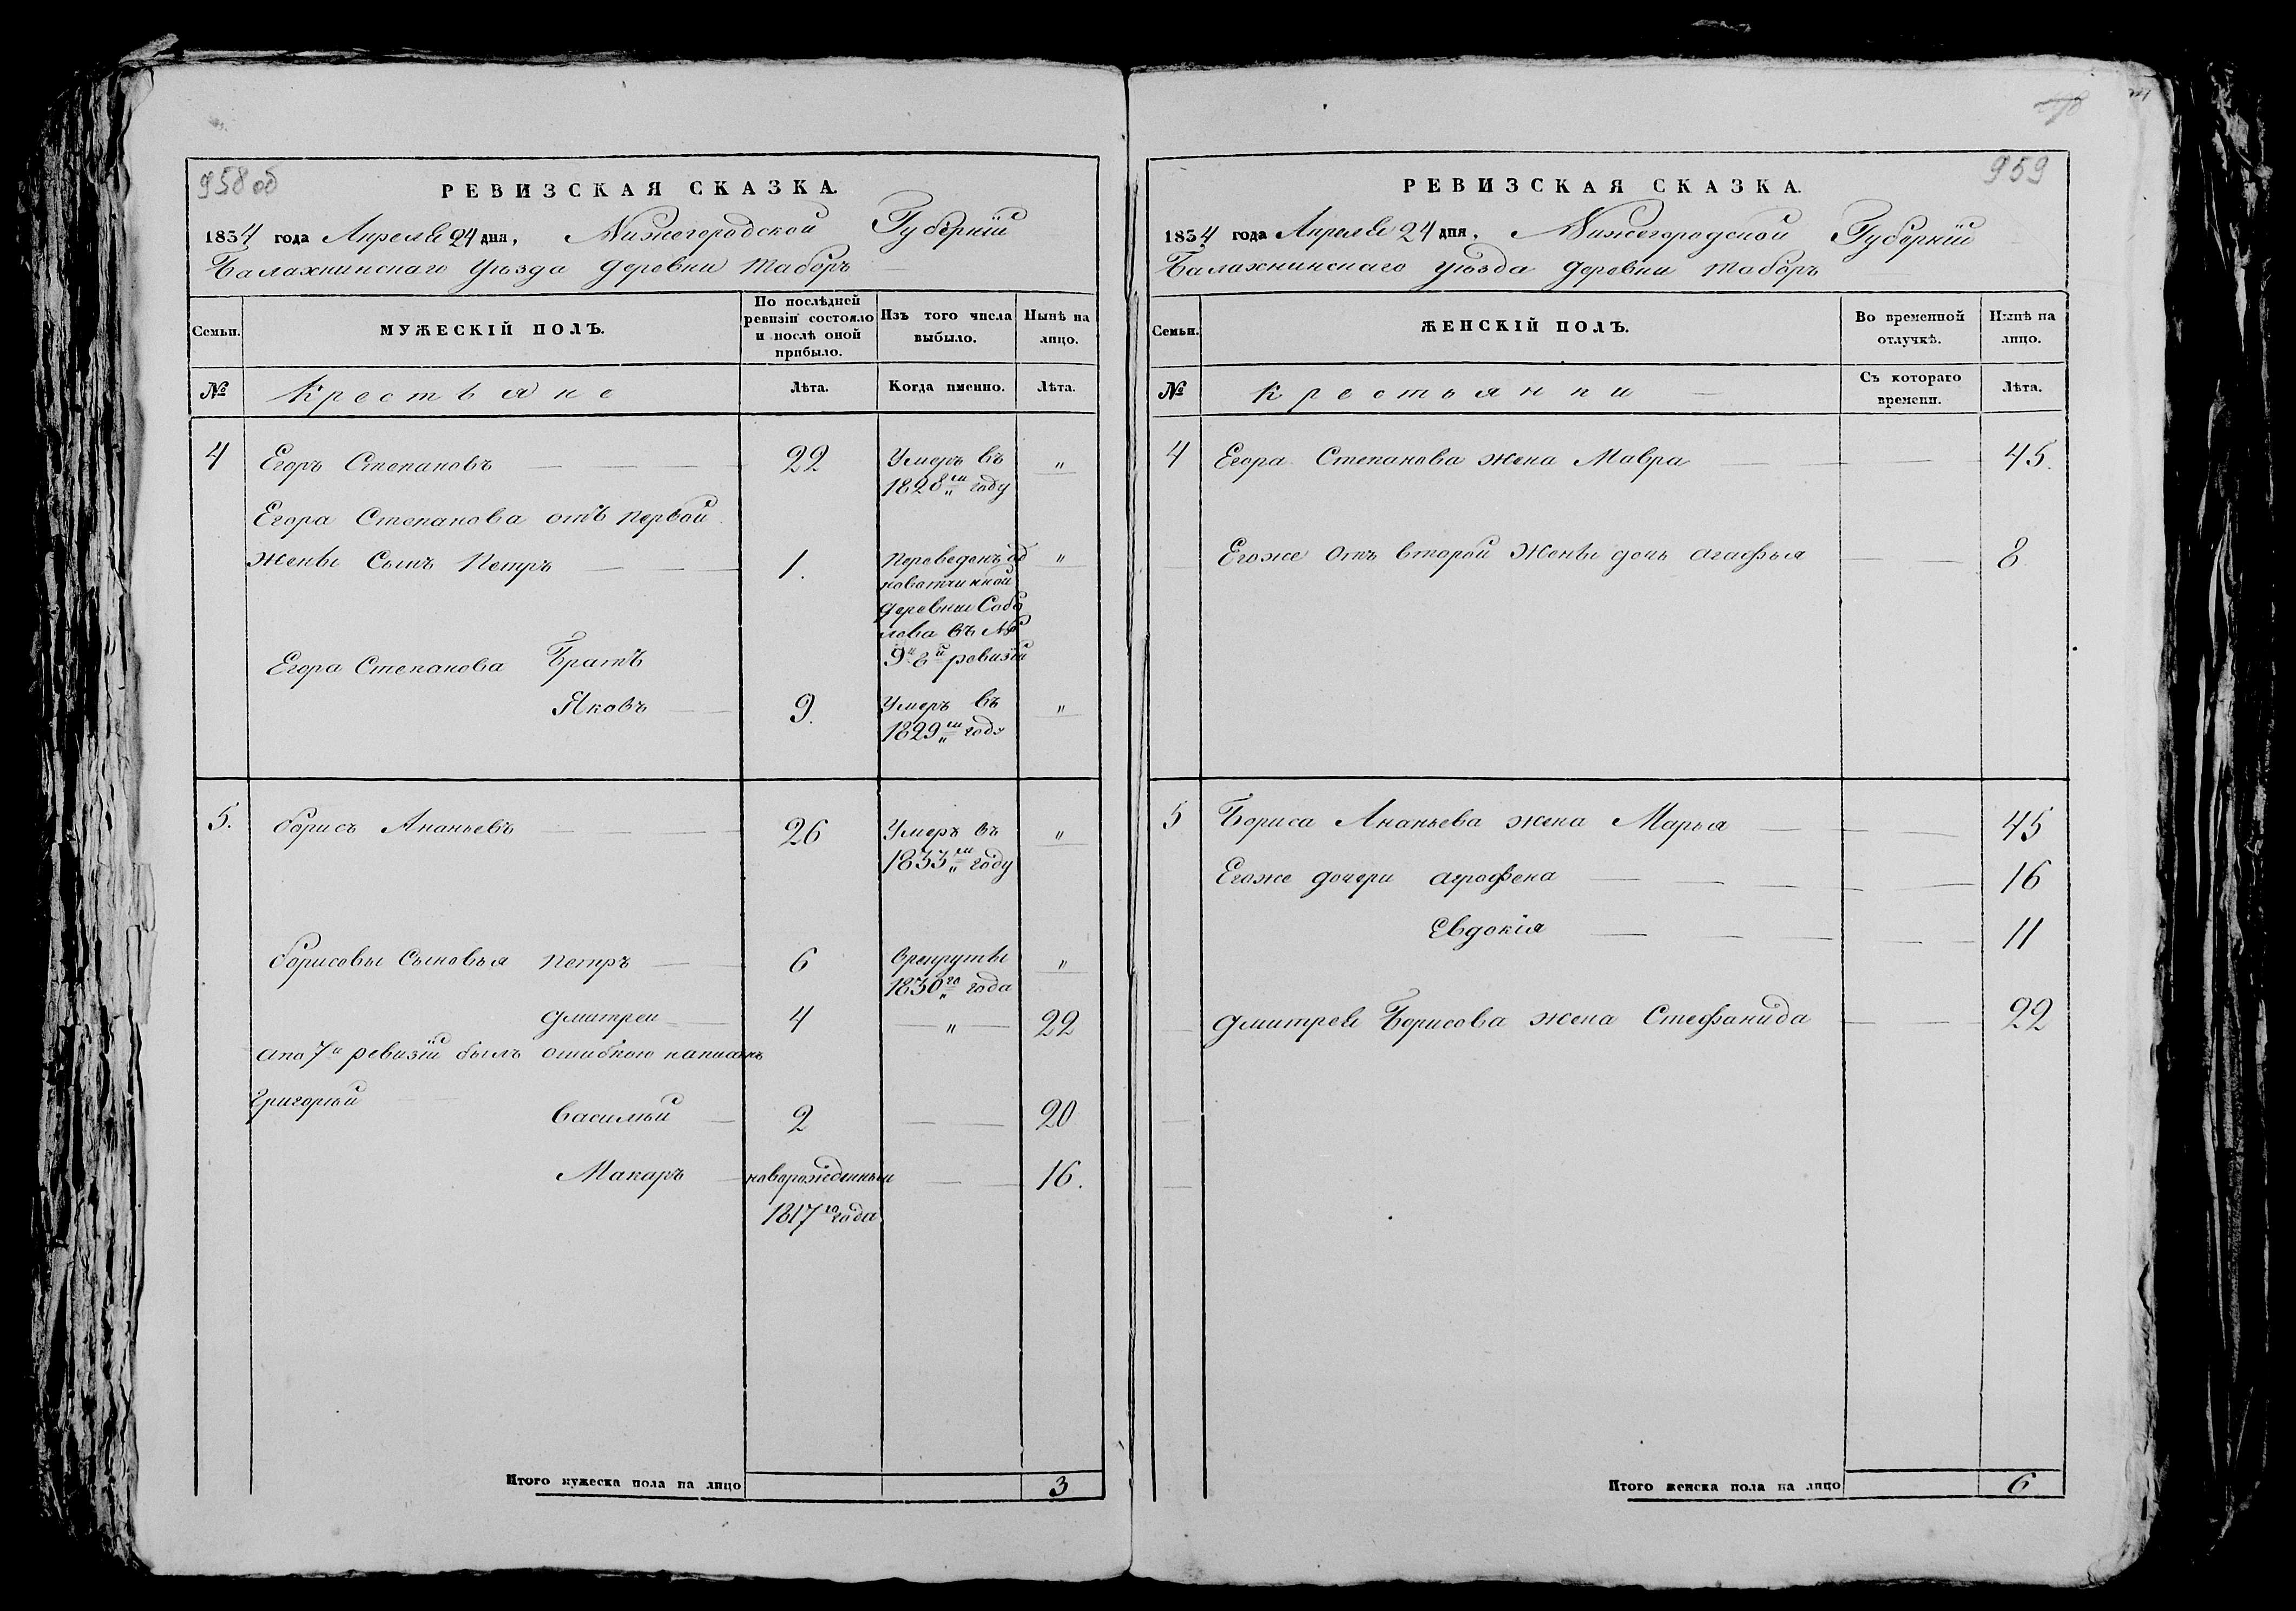 958 об
РЕВИЗСКАЯ СКАЗКА.
1834 года Апреля 24 дня, Нижегородской Губернiи
Балахнинскаго уѣзда деревни Таборъ
Семьи.
МУЖЕСКIЙ ПОЛЪ.
По послѣдней ревизiи состояло и послѣ оной прибыло.
Изъ того числа выбыло.
Нынѣ на лицо.
№
Крестьяне
Лѣта.
Когда именно.
Лѣта.
4 Егоръ Степановъ 22 Умеръ въ "
1828мъ году
Егора Степанова отъ первой
жены сынъ Петръ 1. Переведенъ од "
новотчинной
деревни Собо
лева въ №
9й 8й ревизiи
Егора Степанова Братъ
Яковъ 9. Умеръ въ "
1829мъ году
5. борисъ Ананьевъ 26 Умеръ въ "
1833мъ году
борисовы сыновья петръ 6 Врекруты "
1830го года
дмитреи 4 " 22
апо 7й ревизiи былъ ошибкою написанъ
григорьй
васильй 2 20
Макаръ новорожденныи 16.
1817го года
Итого мужеска пола на лицо 3
959
РЕВИЗСКАЯ СКАЗКА.
1834 года Апреля 24 дня, Нижегородской Губернiи
Балахнинскаго уѣзда деревни Таборъ
Семьи.
ЖЕНСКIЙ ПОЛЪ.
Во временной отлучкѣ.
Нынѣ на лицо.
№
Крестьянки
Съ котораго времени.
Лѣта.
4 Егора Степанова жена Мавра 45.
Егоже отъ второй жены дочь агафья 8
5 Бориса Ананьева жена Марья 45
Егоже дочери аграфена 16
Евдокiя 11
дмитрея Борисова жена Стефанида 22
Итого женска пола на лицо 6